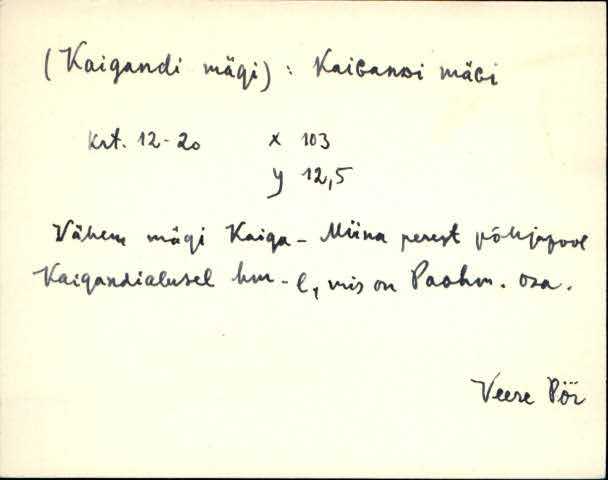 (Kaigandi mägi) : KaiganDi mäGi
krt. 12-20 x 103
y 12,5
Vähem mägi Kaiga-Miina perest põhjapool
Kaigandialusel hm-l, mis on Paohm. osa.
Veere Pör